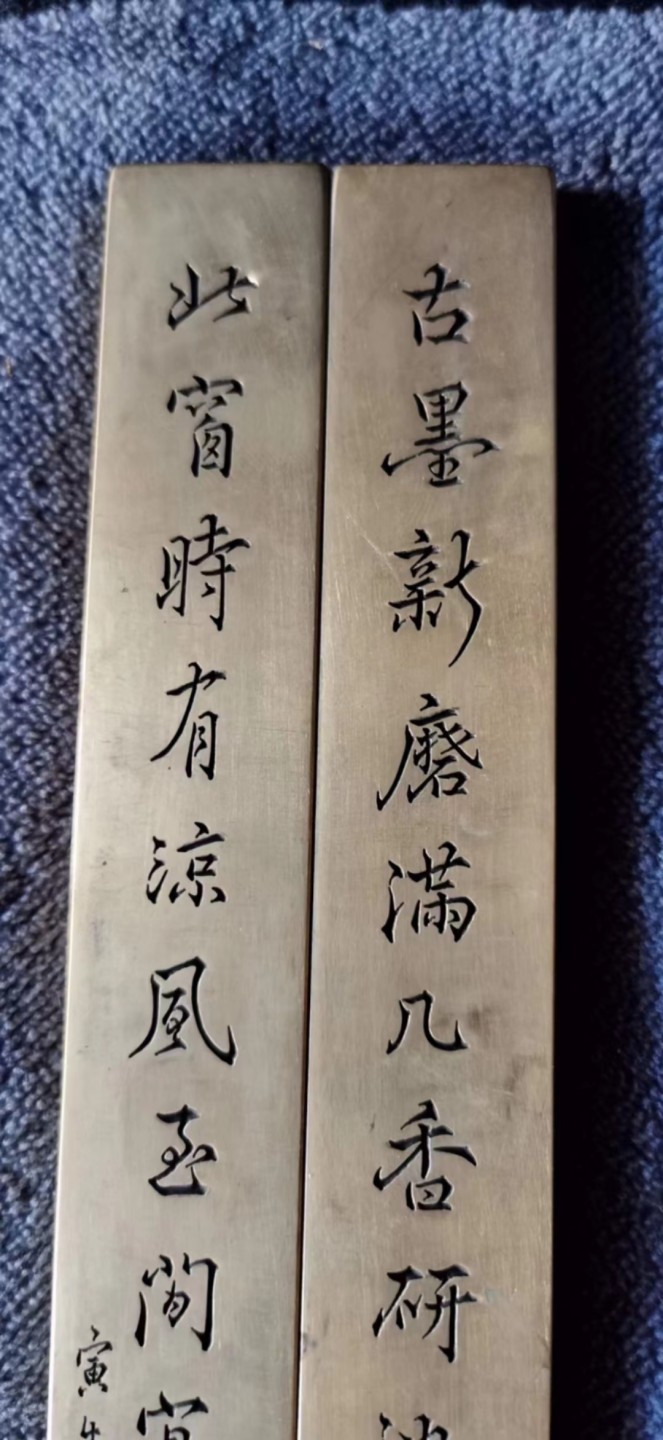 古墨新磨滿几香研
北窗時有涼風至閒
寅